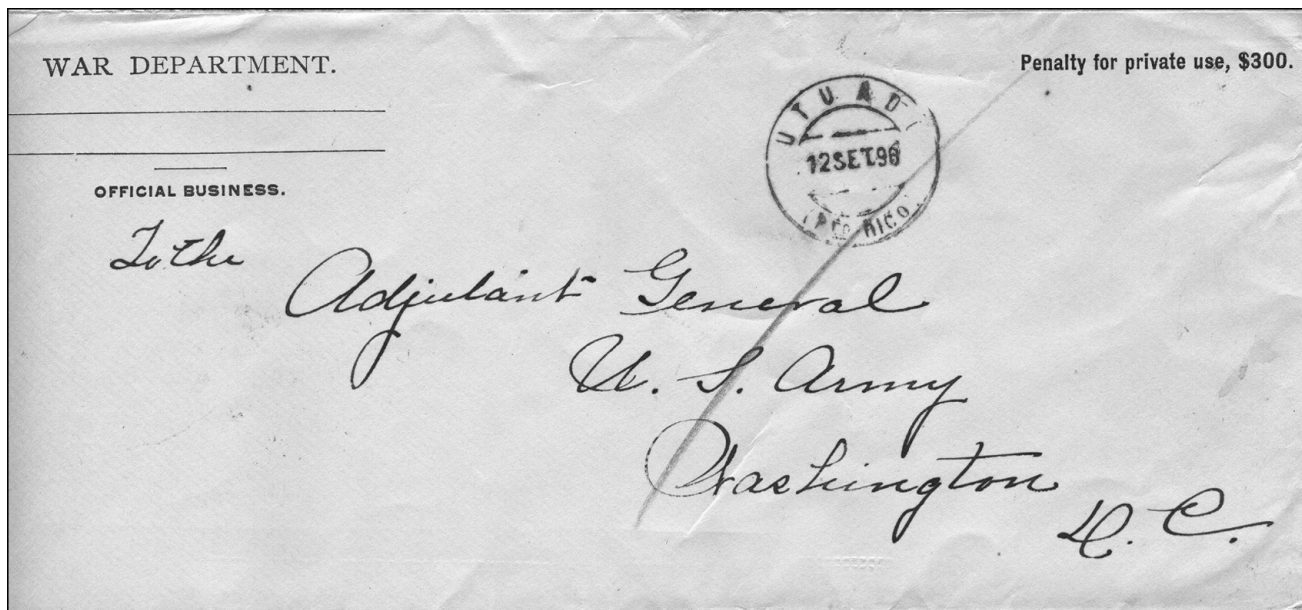 WAR DEPARTMENT.
Penalty for private use, $300.
OFFICIAL BUSINESS.
UTUADO
12 SET.98
(PTO RICO)
To the
Adjutant General
U. S. Army
Washington
D. C.